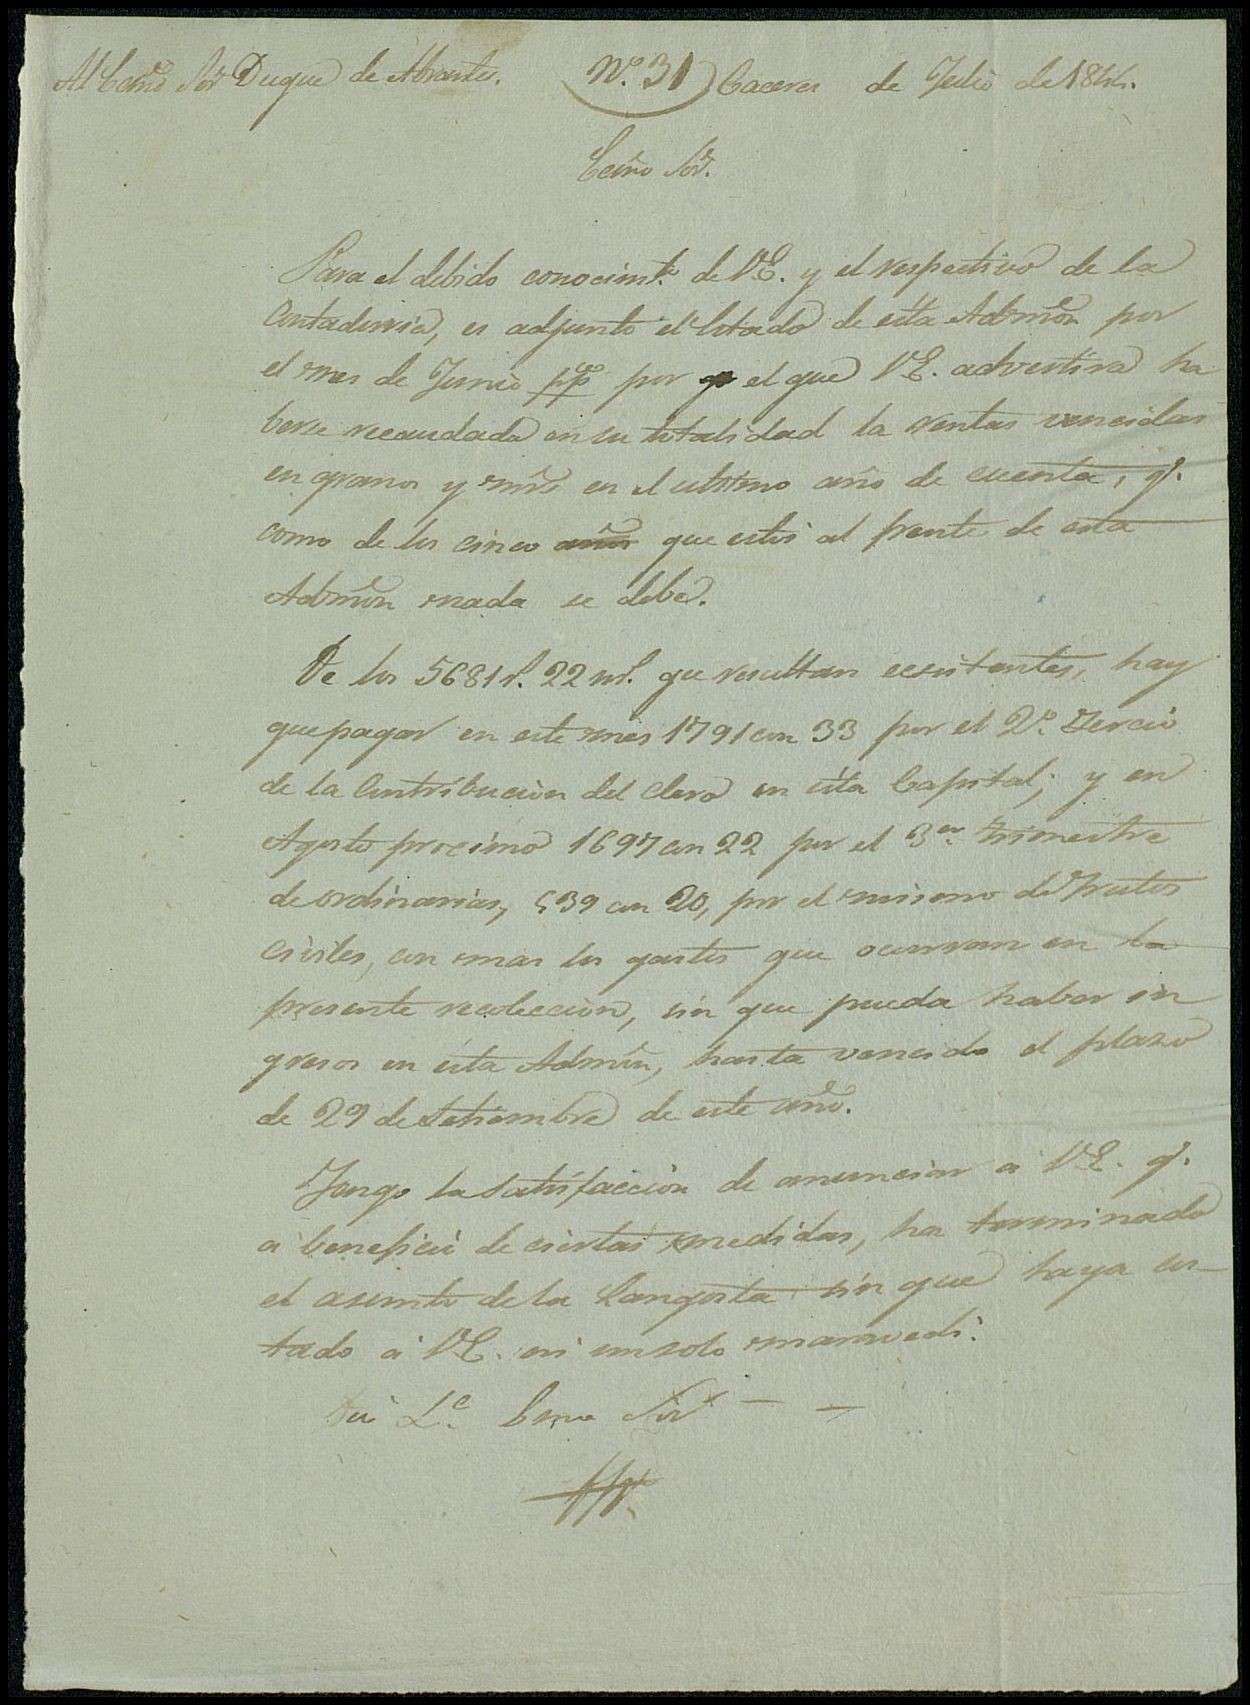 Al Ecmo Sor Duque de Abrantes. Nº. 31 Caceres de Julio de 1844.
Ecmo Sor.
Para el debido conocimto. de V.E. y el respectivo de la
Contaduria, es adjunto el Estado de esta Admon por
el mes de Junio ppº por el que V.E. advertira ha
berse recaudado en su totalidad la rentas vencidas
en granos y mrs en el ultimo año de cuenta, q.
como de los cinco años que estoi al frente de esta
Admon nada se debe.
De los 5681 r. 22 mr. que resultan ecsistentes, hay
que pagar en este mes 1791 con 33 por el 2º. tercio
de la Contribucion del Clero en esta Capital; y en
Agosto procsimo 1697 con 22 por el 3er. trimestre
de ordinarias, 539 con 20, por el mismo de frutos
civiles, con mas los gastos que ocurran en la
presente recoleccion, sin que pueda haber in
gresos en esta Admon, hasta vencido el plazo
de 29 de Setiembre de este año.
Tengo la satisfaccion de anunciar a V.E. q.
a beneficio de ciertas medidas, ha terminado
el asunto de la Langosta sin que haya cos-
tado a V.E. ni un solo maravedi.
Ecmo Sor